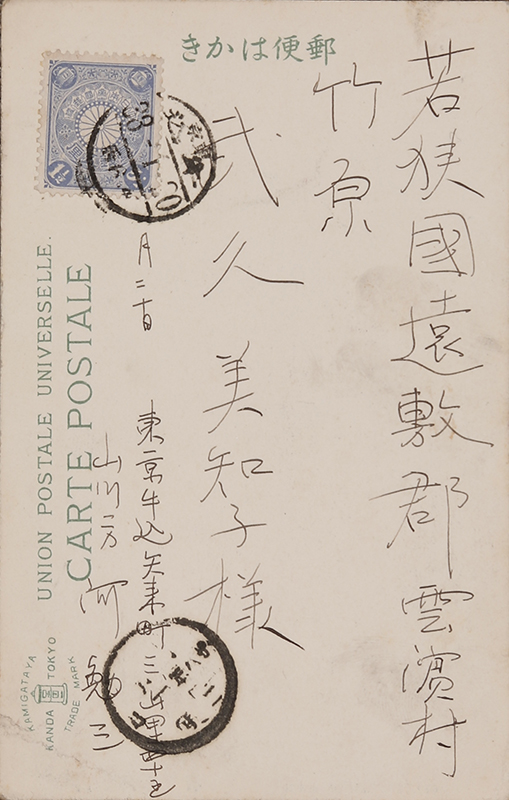 きかは便郵
若狭國遠敷郡雲濱村
竹原
武久 美知子様
月二十日
東京牛込矢来町三
山川方 河 勉三
UNION POSTALE UNIVERSELLE.
CARTE POSTALE
KAMIGATAYA
KANDA TOKYO
TRADE MARK
1½